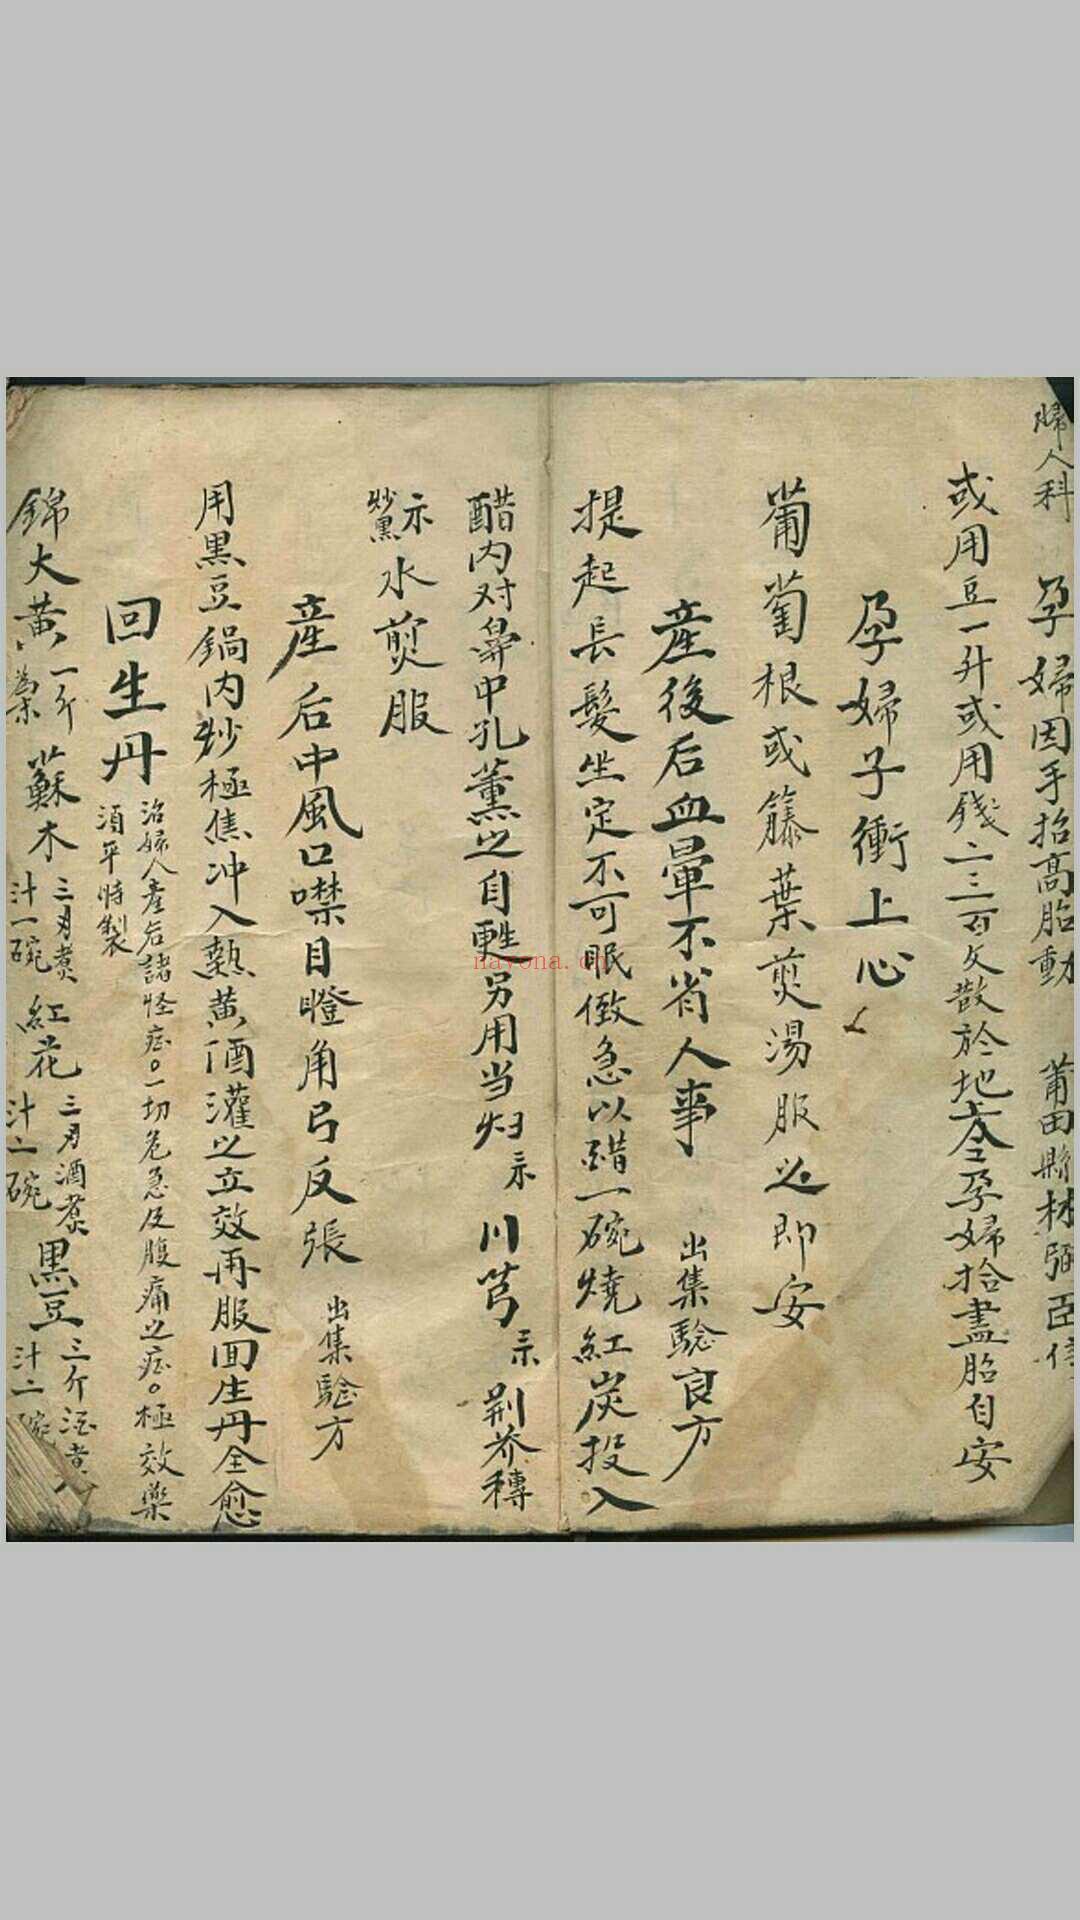 婦人科 孕婦因手抬高胎動 莆田縣林弼臣傳
或用豆一升或用錢二三百文散於地上令孕婦拾盡胎自安
孕婦子衝上心
葡萄根或籐葉煎湯服之即安
產後后血暈不省人事 出集騐良方
提起長髮坐定不可眠倒急以醋一碗燒紅炭投入
醋内对鼻中孔薰之自甦另用当归 川芎 荆芥穗
炒黑 水煎服
產后中風口噤目瞪角弓反張 出集騐方
用黑豆鍋内炒極焦冲入熱黄酒灌之立效再服回生丹全愈
回生丹 治婦人產后諸怪症。一切危急及腹痛之症。極效藥
須平時製
錦大黄一斤為末 蘇木三刄煑汁一碗 紅花三刄酒煑汁二碗 黑豆三斤酒煑汁二碗
nayona.cn